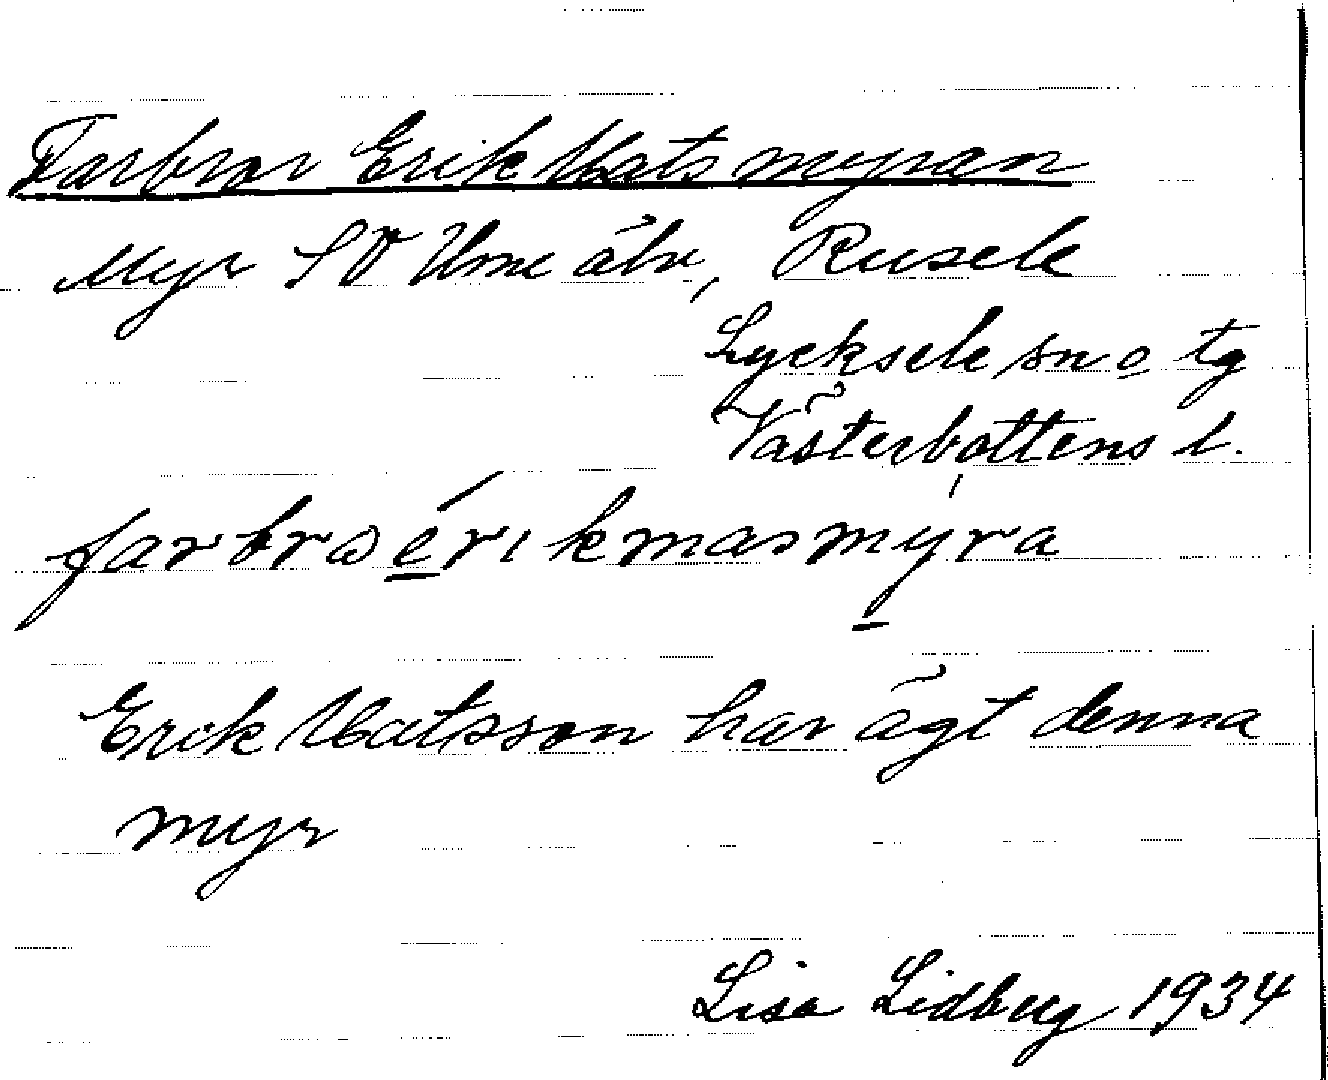 Farbror Erik Mats myran
Myr SV Ume älv, Rusele
Lycksele sn o tg
Västerbottens l.
farbrω érıkmasmýra
Erik Matsson har ägt denna
myr
Lisa Lidberg 1934